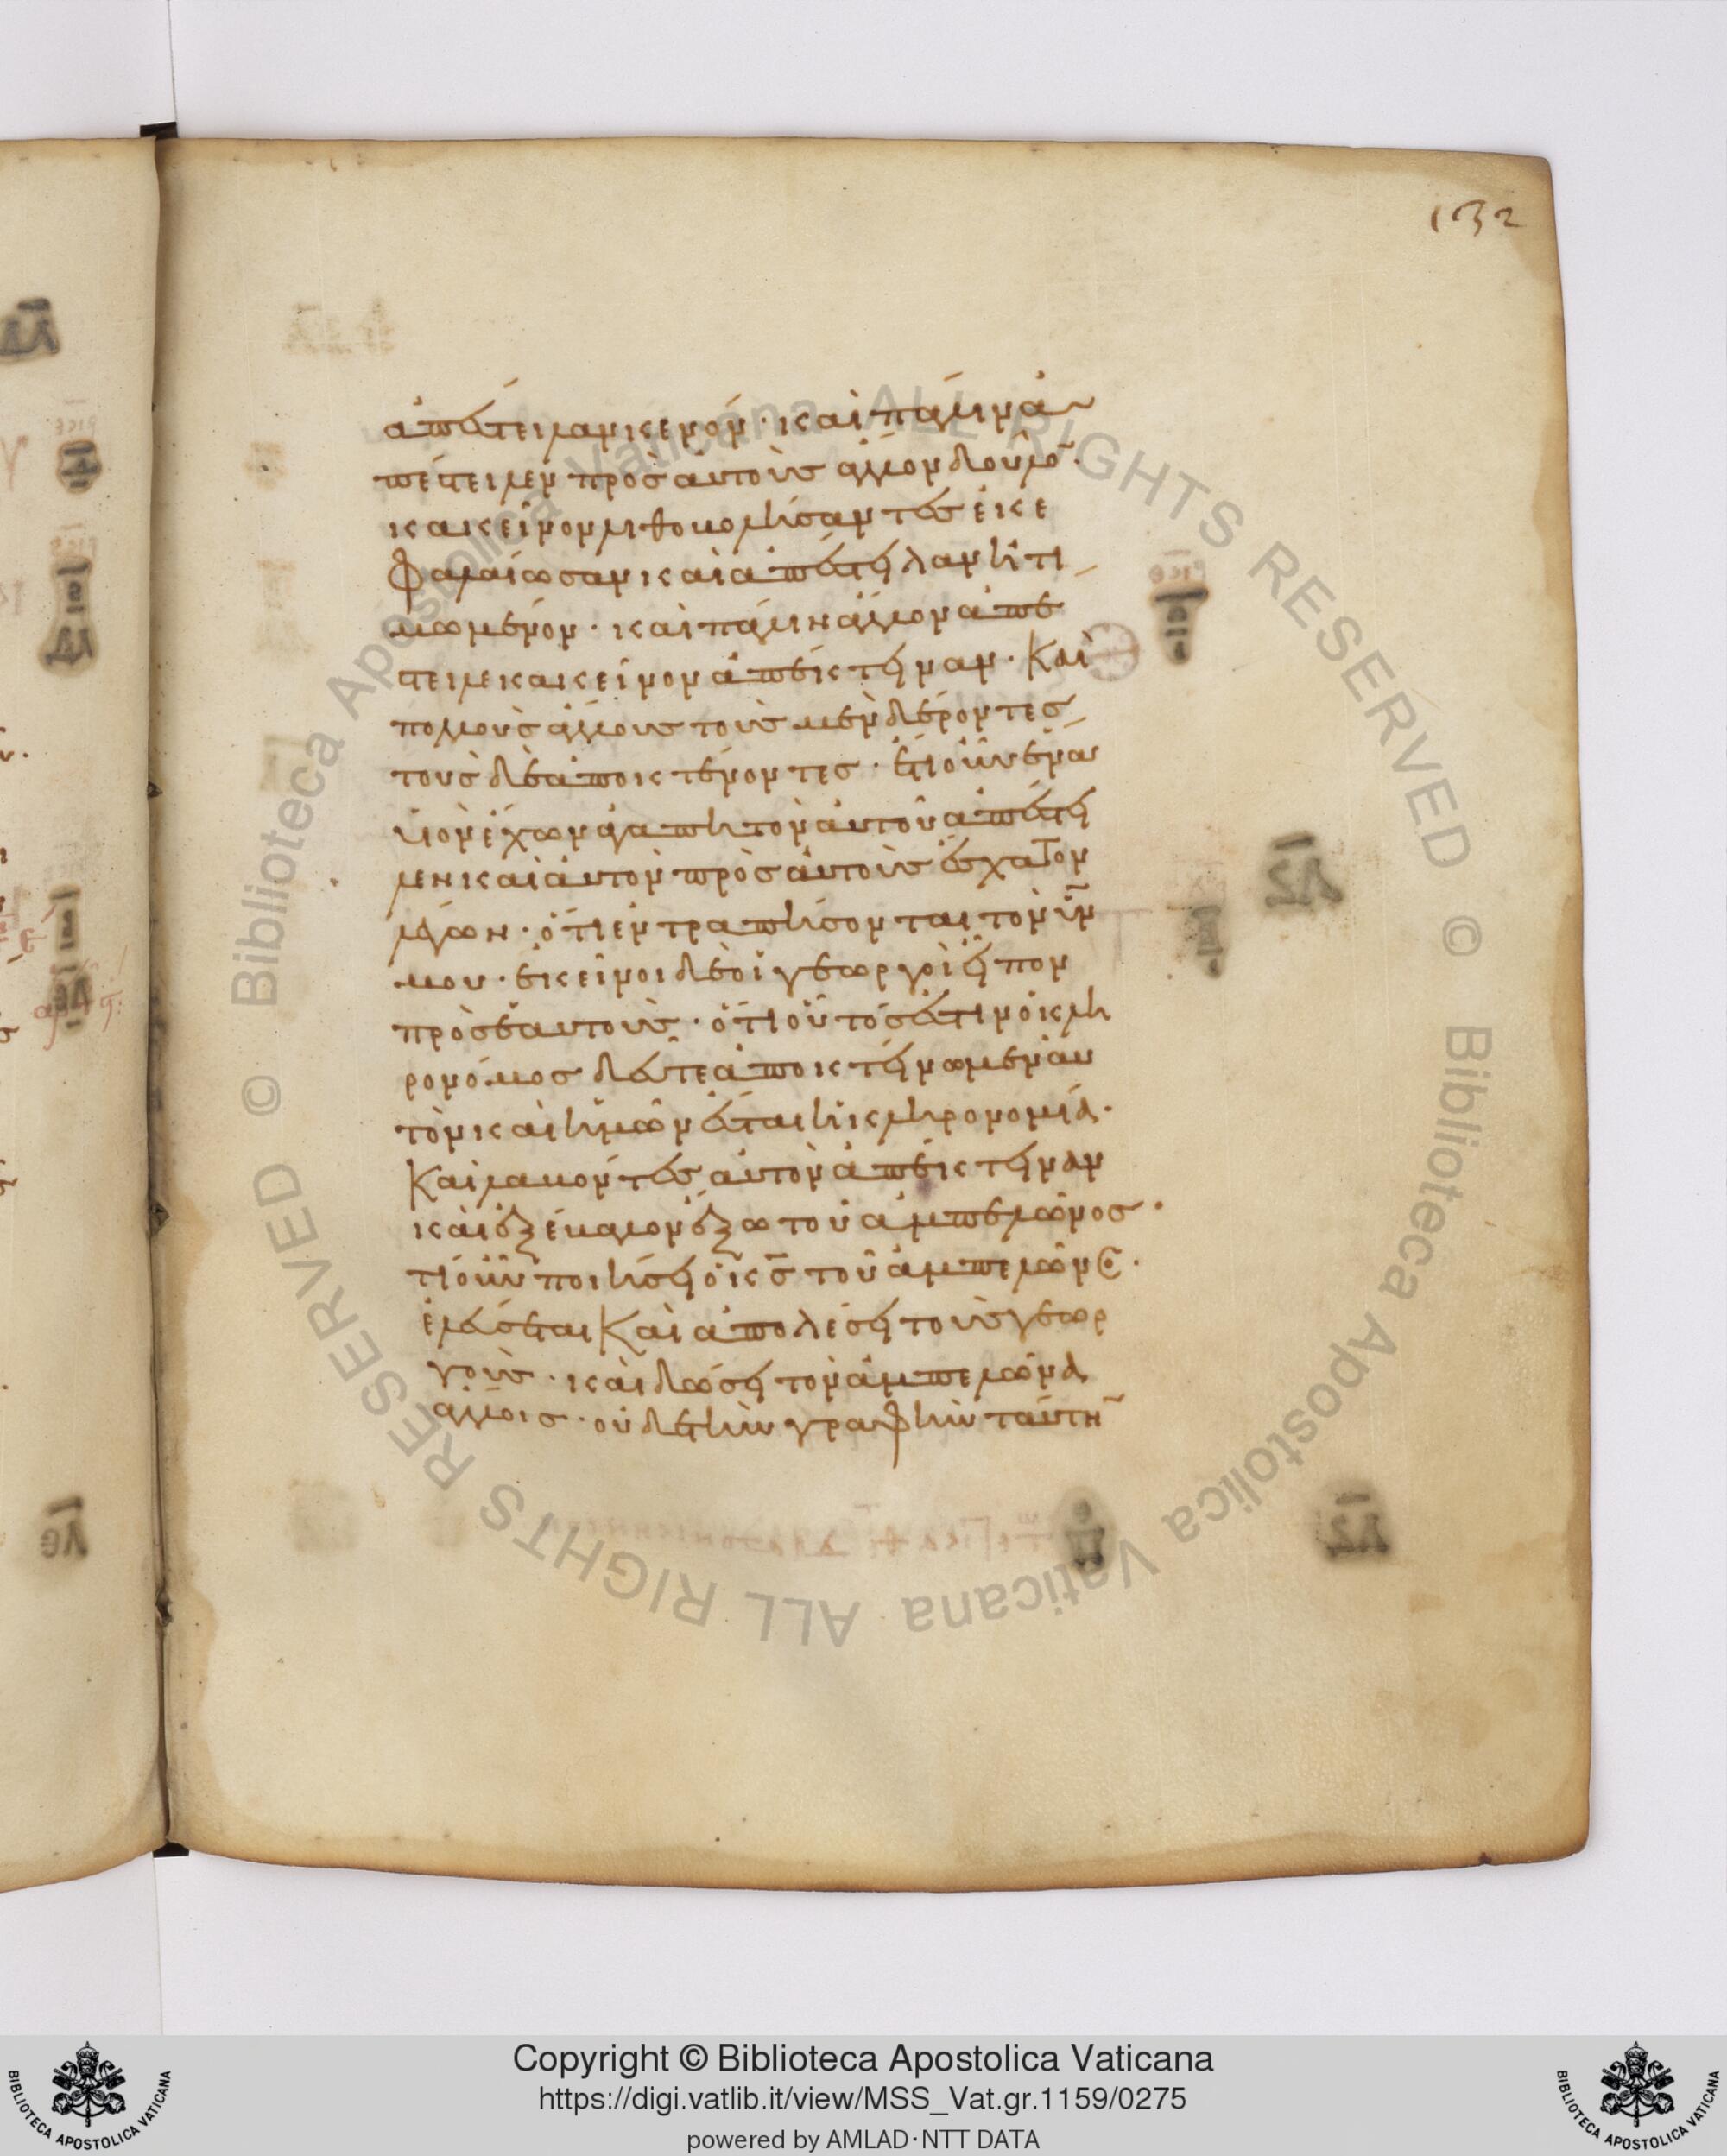 132
ἀπέστειλαν κενόν· καὶ πάλιν ἀ
πέστειλεν πρὸς αὐτοὺς ἄλλον δοῦλο̅·
κακεῖνον λιθοβολήσαντες ἐκε
φαλαίωσαν καὶ ἀπέστειλαν ἠτι
μωμένον· καὶ πάλιν ἄλλον ἀπέ
στειλε κακεῖνον ἀπέκτειναν· Καὶ
πολλοὺς ἄλλους τοὺς μὲν δέροντες
τοὺς δὲ ἀποκτένοντες· ἔτι οὖν ἕνα
υἱὸν ἔχων ἀγαπητὸν αὐτοῦ ἀπέστει
λεν καὶ αὐτὸν πρὸς αὐτοὺς ἔσχατον
λέγων· ὅτι ἐντραπήσονται τὸν υ̅ν
μου· ἐκεῖνοι δὲ οἱ γεωργοὶ εἶπον
πρὸς ἑαυτούς· ὅτι οὗτός ἐστιν ὁ κλη
ρονόμος δεῦτε ἀποκτείνωμεν αὐ
τὸν καὶ ἡμῶν ἔσται ἡ κληρονομία·
Καὶ λαβόντες αὐτὸν ἀπέκτειναν
καὶ ἐξέβαλον ἔξω τοῦ ἀμπελῶνος·
τί οὖν ποιήσει ὁ κ̅ς τοῦ ἀμπελῶνος·
ἐλεύσεται Καὶ ἀπολέσει τοὺς γεωρ
γούς· καὶ δώσει τὸν ἀμπελῶνα
ἄλλοις· οὐδὲ τὴν γραφὴν ταύτη̅
Copyright © Biblioteca Apostolica Vaticana
https://digi.vatlib.it/view/MSS_Vat.gr.1159/0275
powered by AMLAD·NTT DATA